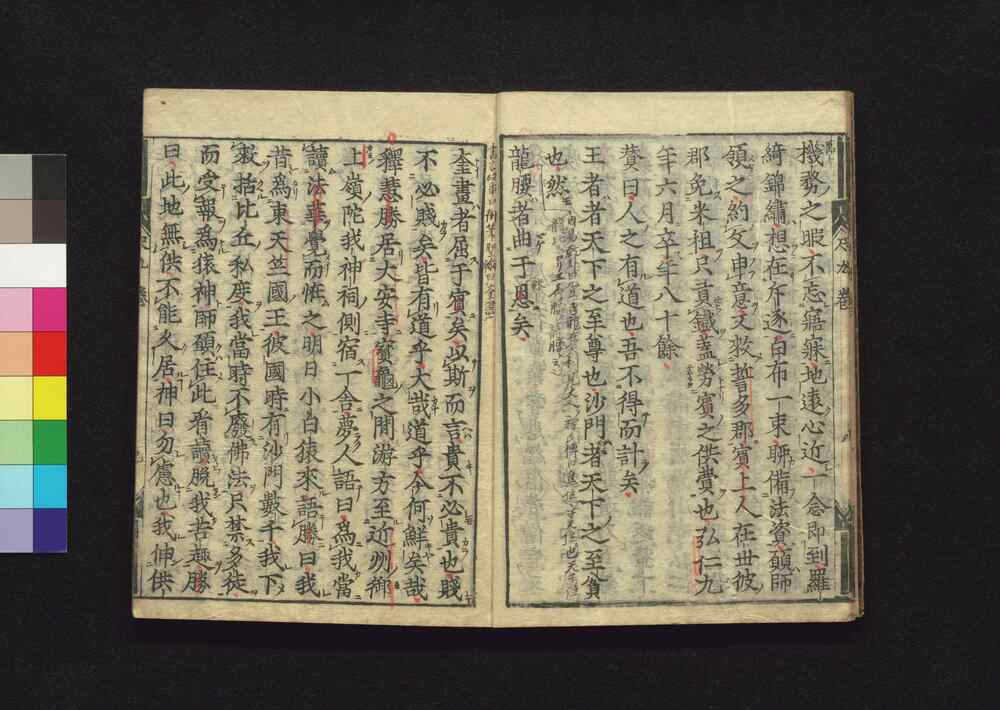 機務之暇不忘寤寐地遠心近一念即到羅
綺錦繡想在斥逐白布一束聊備法資願師
領之約文申意又救誓多郡賓上人在世彼
郡免米租只貢鐵蓋勞賓之供賞也弘仁九
年六月卒年八十餘
賛曰人之有道也吾不得而計矣
王者者天下之至尊也沙門者天下之至貧
也然
龍腰者曲于恩矣
奎畫者屈于賓矣以斯而言貴不必貴也賤
不必賤矣皆有道乎大哉道乎今何鮮矣哉
釋慧勝居大安寺寳龜之間游方至近州御
上嶺陀我神祠側宿一舍夢人語曰爲我當
讀法華覺而恠之明日小白猿來語勝曰我
昔爲東天竺國王彼國時有沙門數千我下
敎括比丘私度我當時不廢佛法只禁多徒
而受報爲猿神師願住此看讀脫我苦趣勝
曰此地無供不能久居神曰勿慮也我伸供